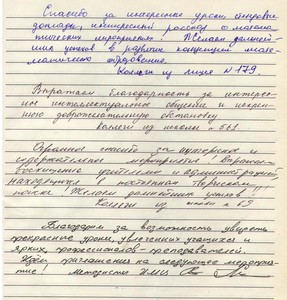 Спасибо за интересные уроки, откровен
доклады, интересный рассказ о матема
тических мероприятиях! Желаем дальней-
ших успехов в развитии концепции мате-
матического образования.
Коллеги из лицея N 179.
Выражаем благодарность за интерес-
ное интеллектуальное общение и искрен-
нюю доброжелательную обстановку
коллеги из школы N 561
Огромное спасибо за интересное и
содержательное мероприятие! Выражаем
восхищение учителями и администрацией,
находящимися в постоянном творческом
поиске! Желаем дальнейших успехов!
Коллеги из школы N 69
Благодарим за возможность увидеть
прекрасные уроки, увлеченных учащихся и
ярких, профессионалов-преподавателей.
Ждем приглашения на следующее меропри-
ятие! Методисты НМЦ